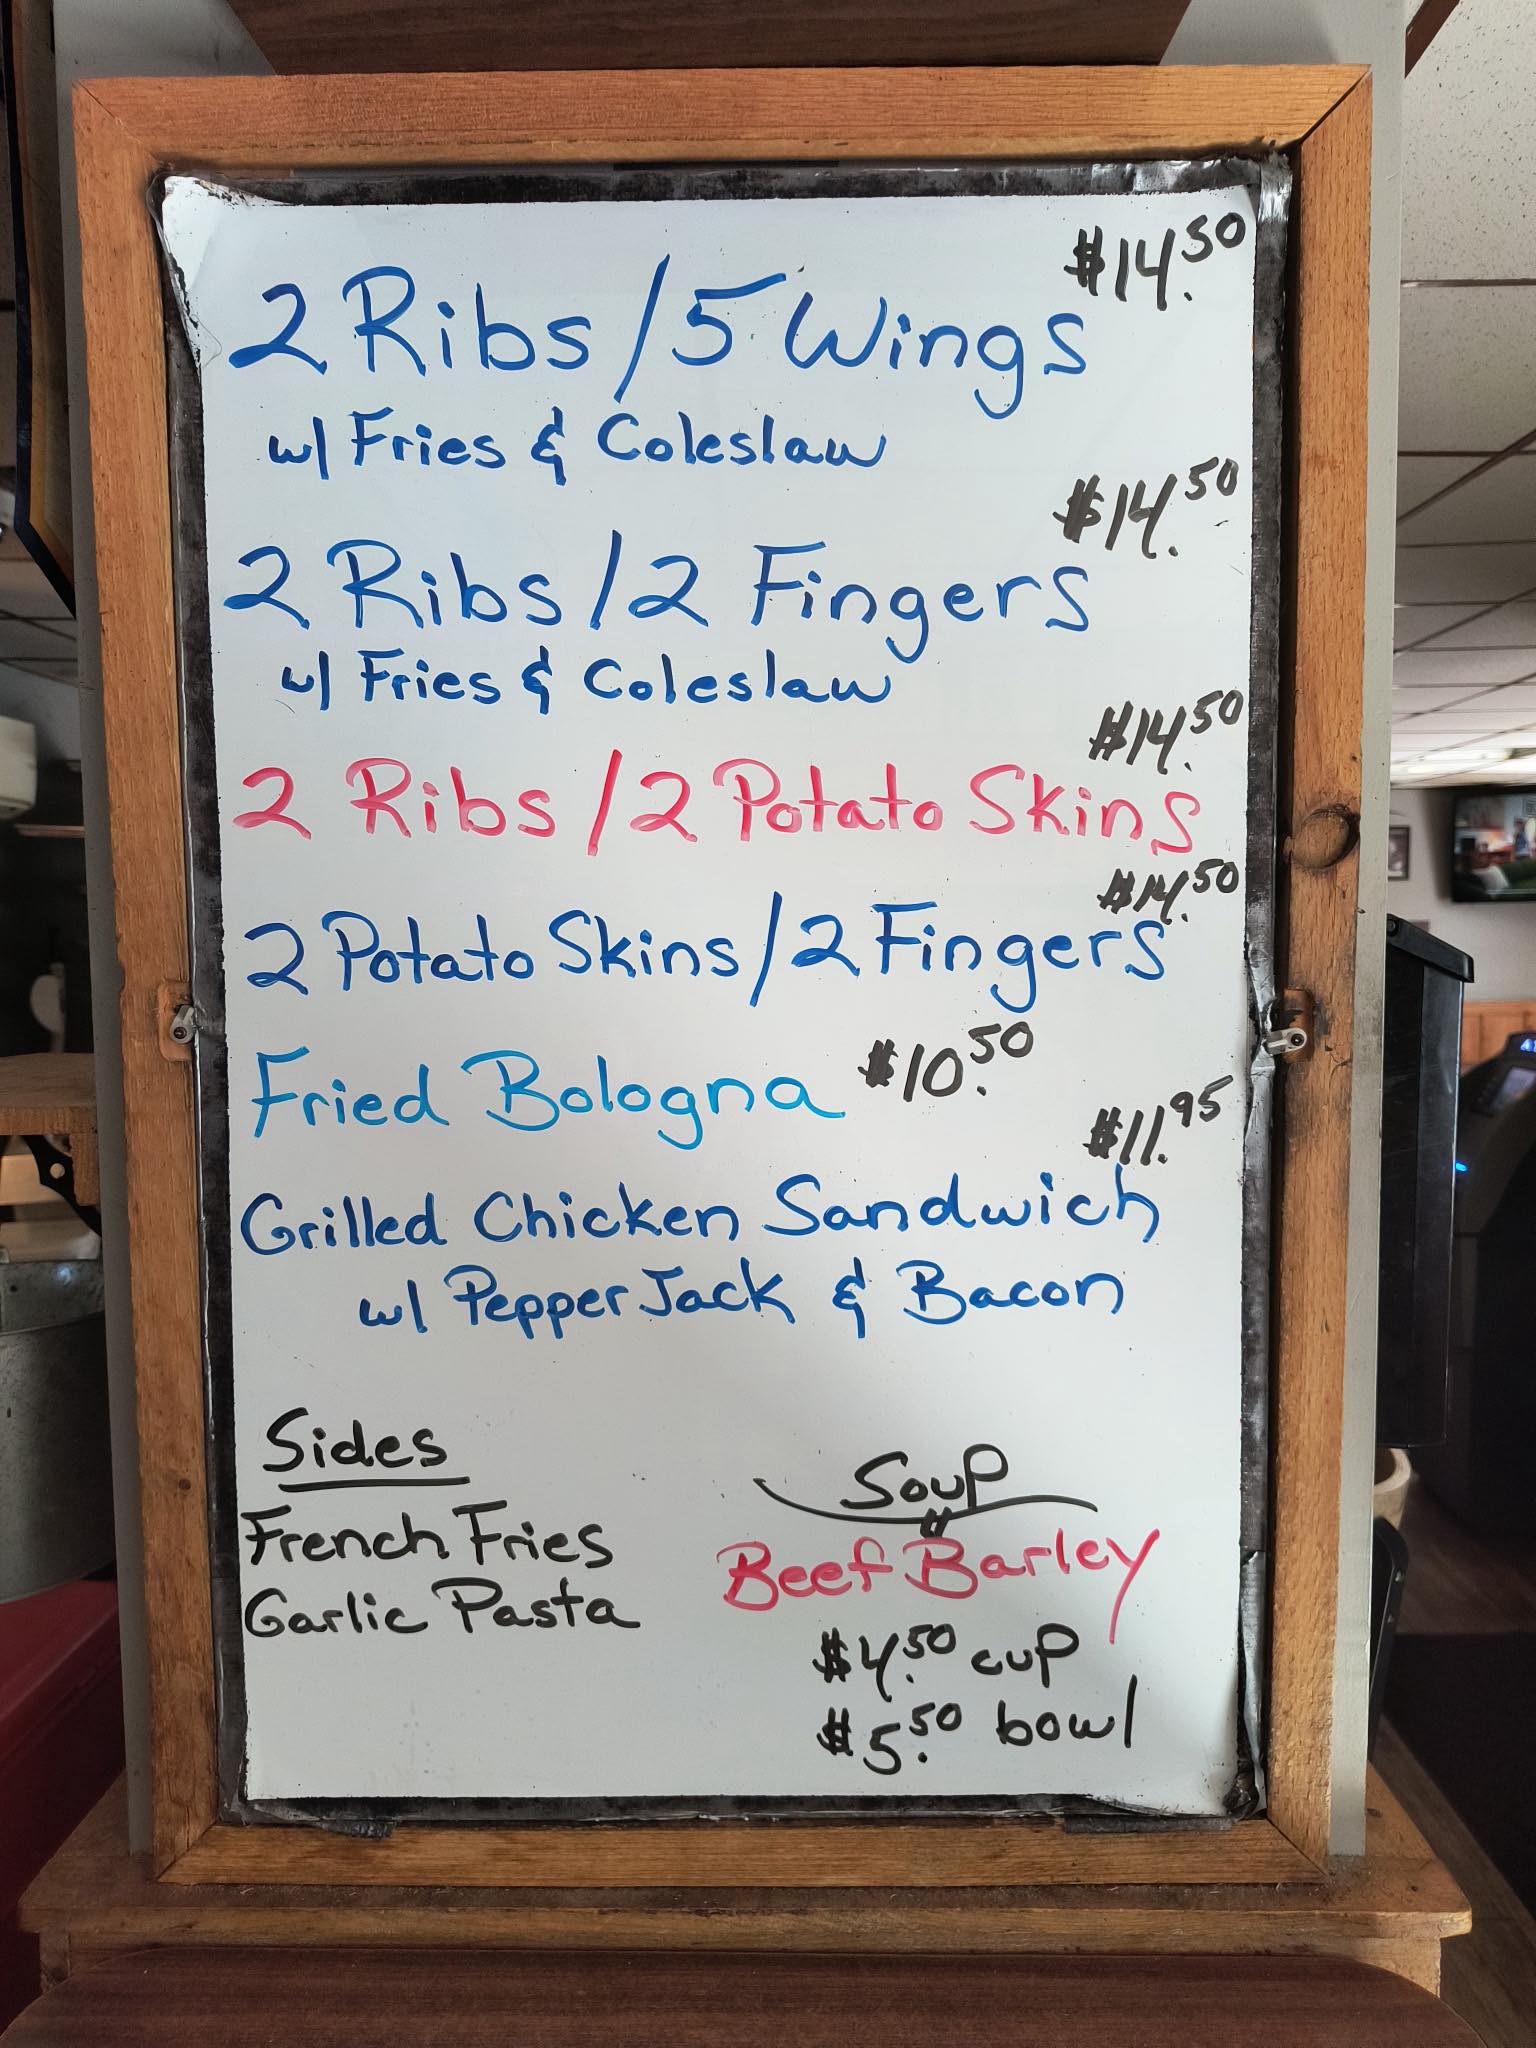 $14.50
2 Ribs / 5 Wings
w/ Fries & Coleslaw
$14.50
2 Ribs / 2 Fingers
w/ Fries & Coleslaw
$14.50
2 Ribs / 2 Potato Skins
$14.50
2 Potato Skins / 2 Fingers
Fried Bologna $10.50
$11.95
Grilled Chicken Sandwich
w/ Pepper Jack & Bacon
Sides
French Fries
Garlic Pasta
Soup
Beef Barley
$4.50 cup
$5.50 bowl